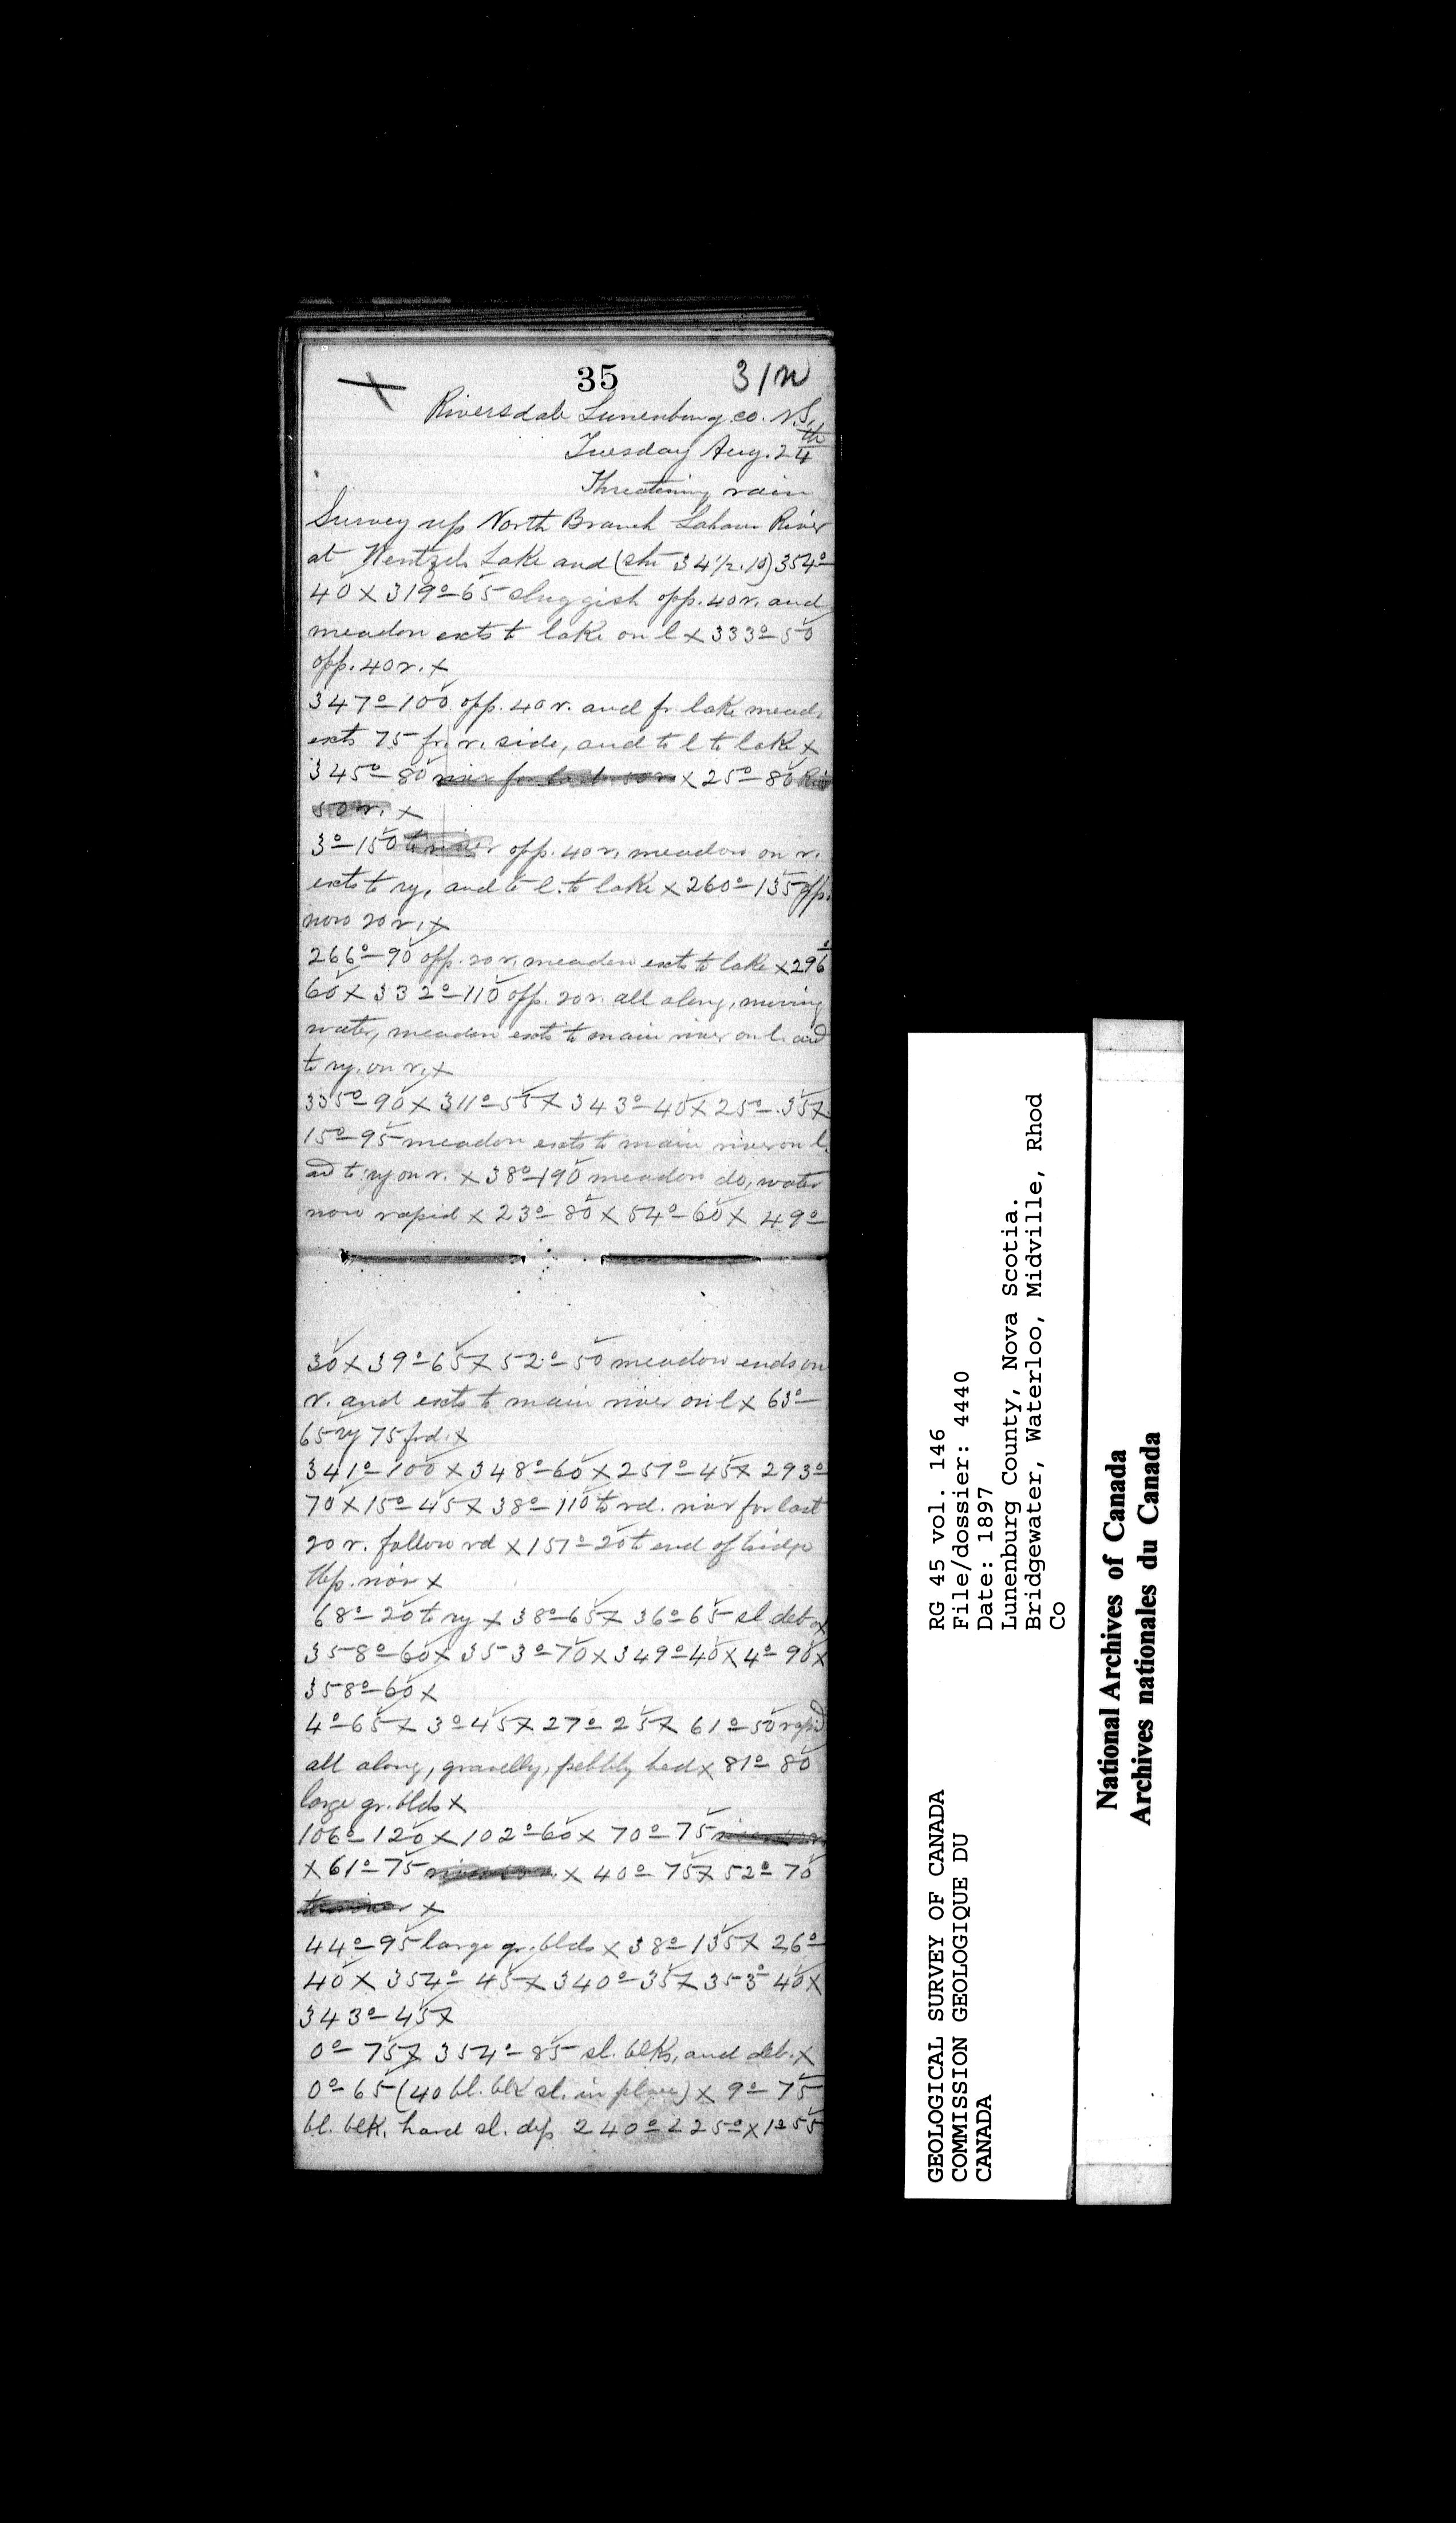 35
31w
Riversdale Lunenburg co. N.S.
Tuesday Aug. 24th
Threatening rain
Survey up North Branch Lahave River
at Wentzels Lake and (stn 34 1/2. 10) 354°–
40 X 319°–65 sluggish opp. 40 r. and
meadow exts to lake on l X 333°–50
opp. 40 r. X
347°–100 opp. 40 r. and fr. lake mead.
exts 75 fr. r. side, and to l to lake X
345°–80 river for last 50 r X 25°–80
50 r. X
3°–150 to river opp. 40 r. meadow on r.
exts to ry, and to l. to lake X 260°–135 opp.
now 20 r. X
266°–90 opp. 20 r. meadow exts to lake X 296°
60 X 332°–110 opp. 20 r. all along, moving
water, meadow exts to main river on l. and
to ry. on r. X
335°–90 X 311°–55 X 343°–40 X 25°–35 X
15°–95 meadow exts to main river on l.
and to ry on r. X 38°–190 meadow do, water
now rapid X 23°–80 X 54°–60 X 49°–
30 X 39°–65 X 52°–50 meadow ends on
r. and exts to main river on l X 63°–
65 ry 75 frd. X
341°–100 X 348°–60 X 257°–45 X 293°
70 X 15°–45 X 38°–110 to rd. river for last
20 r. follow rd X 157°–20 to end of bridge
Up. river X
68°–20 to ry X 38°–65 X 36°–65 sl deb X
358°–60 X 353°–70 X 349°–40 X 4°–90 X
358°–60 X
4°–65 X 3°–45 X 27°–25 X 61°–50 rapid
all along, gravelly, pebbly bed X 81°–80
large gr. blds X
106°–120 X 102°–60 X 70°–75
X 61°–75 X 40°–75 X 52°–70
to river X
44°–95 large gr. blds X 38°–135 X 26°–
40 X 354°–45 X 340°–35 X 353°–40 X
343°–45 X
0°–75 X 354°–85 sl. blks, and deb. X
0°–65 (40 bl. blk sl. in place) X 9°–75
bl. blk. hard sl. dip 240° 225° X 1°–55
GEOLOGICAL SURVEY OF CANADA
COMMISSION GEOLOGIQUE DU
CANADA
RG 45 vol. 146
File/dossier: 4440
Date: 1897
Lunenburg County, Nova Scotia.
Bridgewater, Waterloo, Midville, Rhod
Co
National Archives of Canada
Archives nationales du Canada